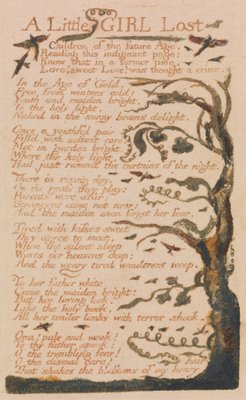 A Little GIRL Lost
Children of the future Age,
Reading this indignant page;
Know that in a former time,
Love! sweet Love! was thought a crime.
In the Age of Gold,
Free from winters cold:
Youth and maiden bright,
To the holy light,
Naked in the sunny beams delight.
Once a youthful pair
Fill'd with softest care:
Met in garden bright,
Where the holy light,
Had just removd the curtains of the night.
There in rising day,
On the grass they play:
Parents were afar:
Strangers came not near:
And the maiden soon forgot her fear.
Tired with kisses sweet
They agree to meet,
When the silent sleep
Waves o'er heavens deep:
And the weary tired wanderers weep.
To her father white
Came the maiden bright:
But his loving look,
Like the holy book,
All her tender limbs with terror shook.
Ona! pale and weak!
To thy father speak:
O the trembling fear!
O the dismal care!
hair
That shakes the blossoms of my hoary